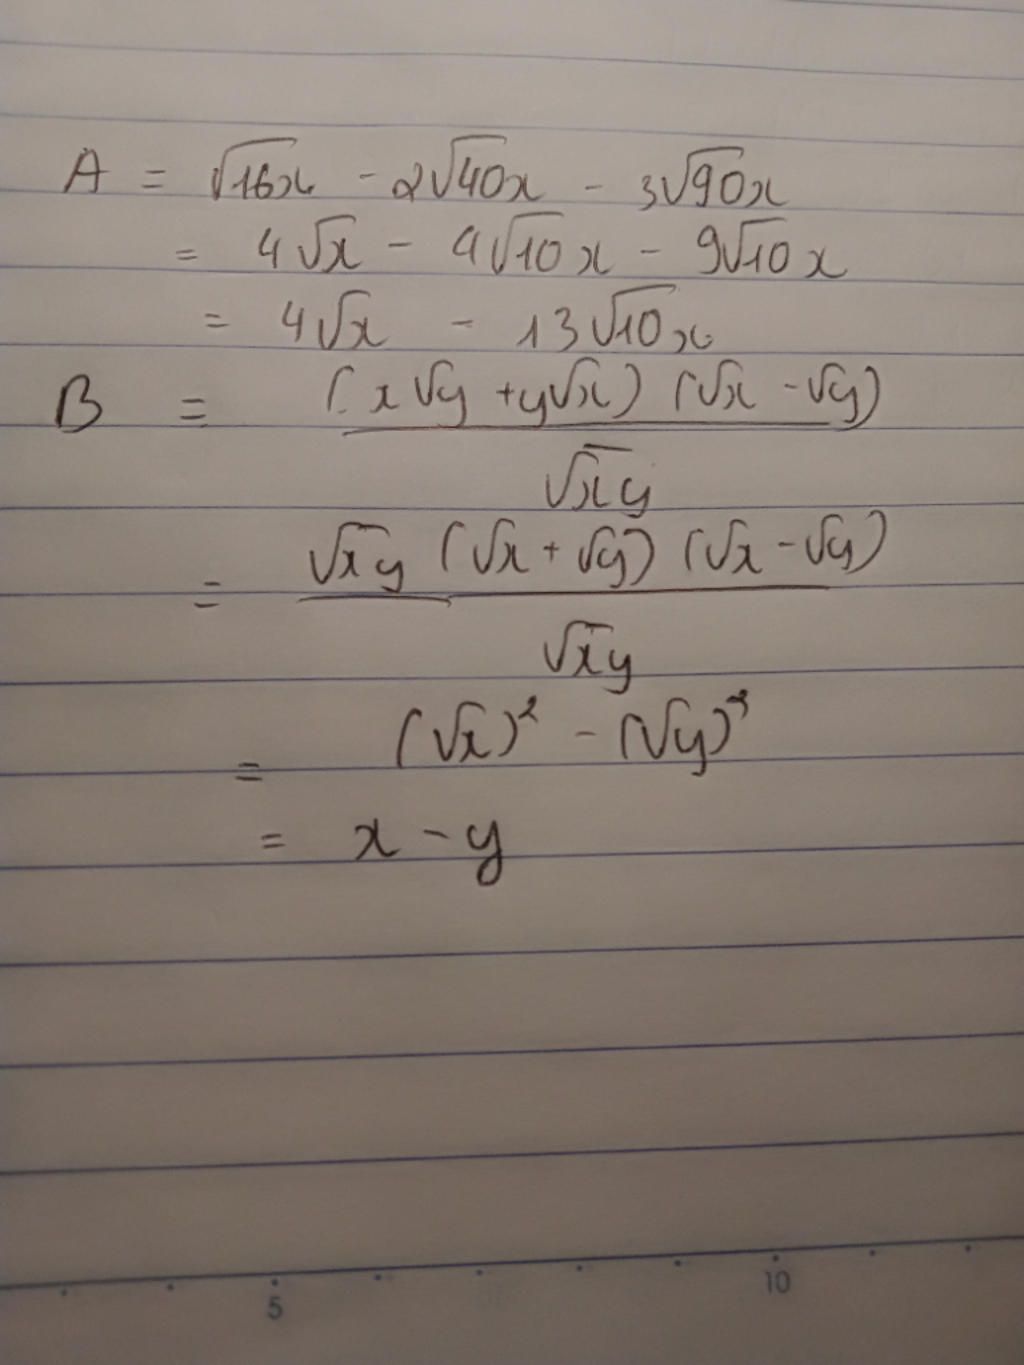 A = √16x - 2√40x - 3√90x
= 4√x - 4√10x - 9√10x
= 4√x - 13√10x
B = (x√y + y√x) (√x - √y)
√xy
= √xy (√x + √y) (√x - √y)
√xy
= (√x)² - (√y)²
= x - y
5 10